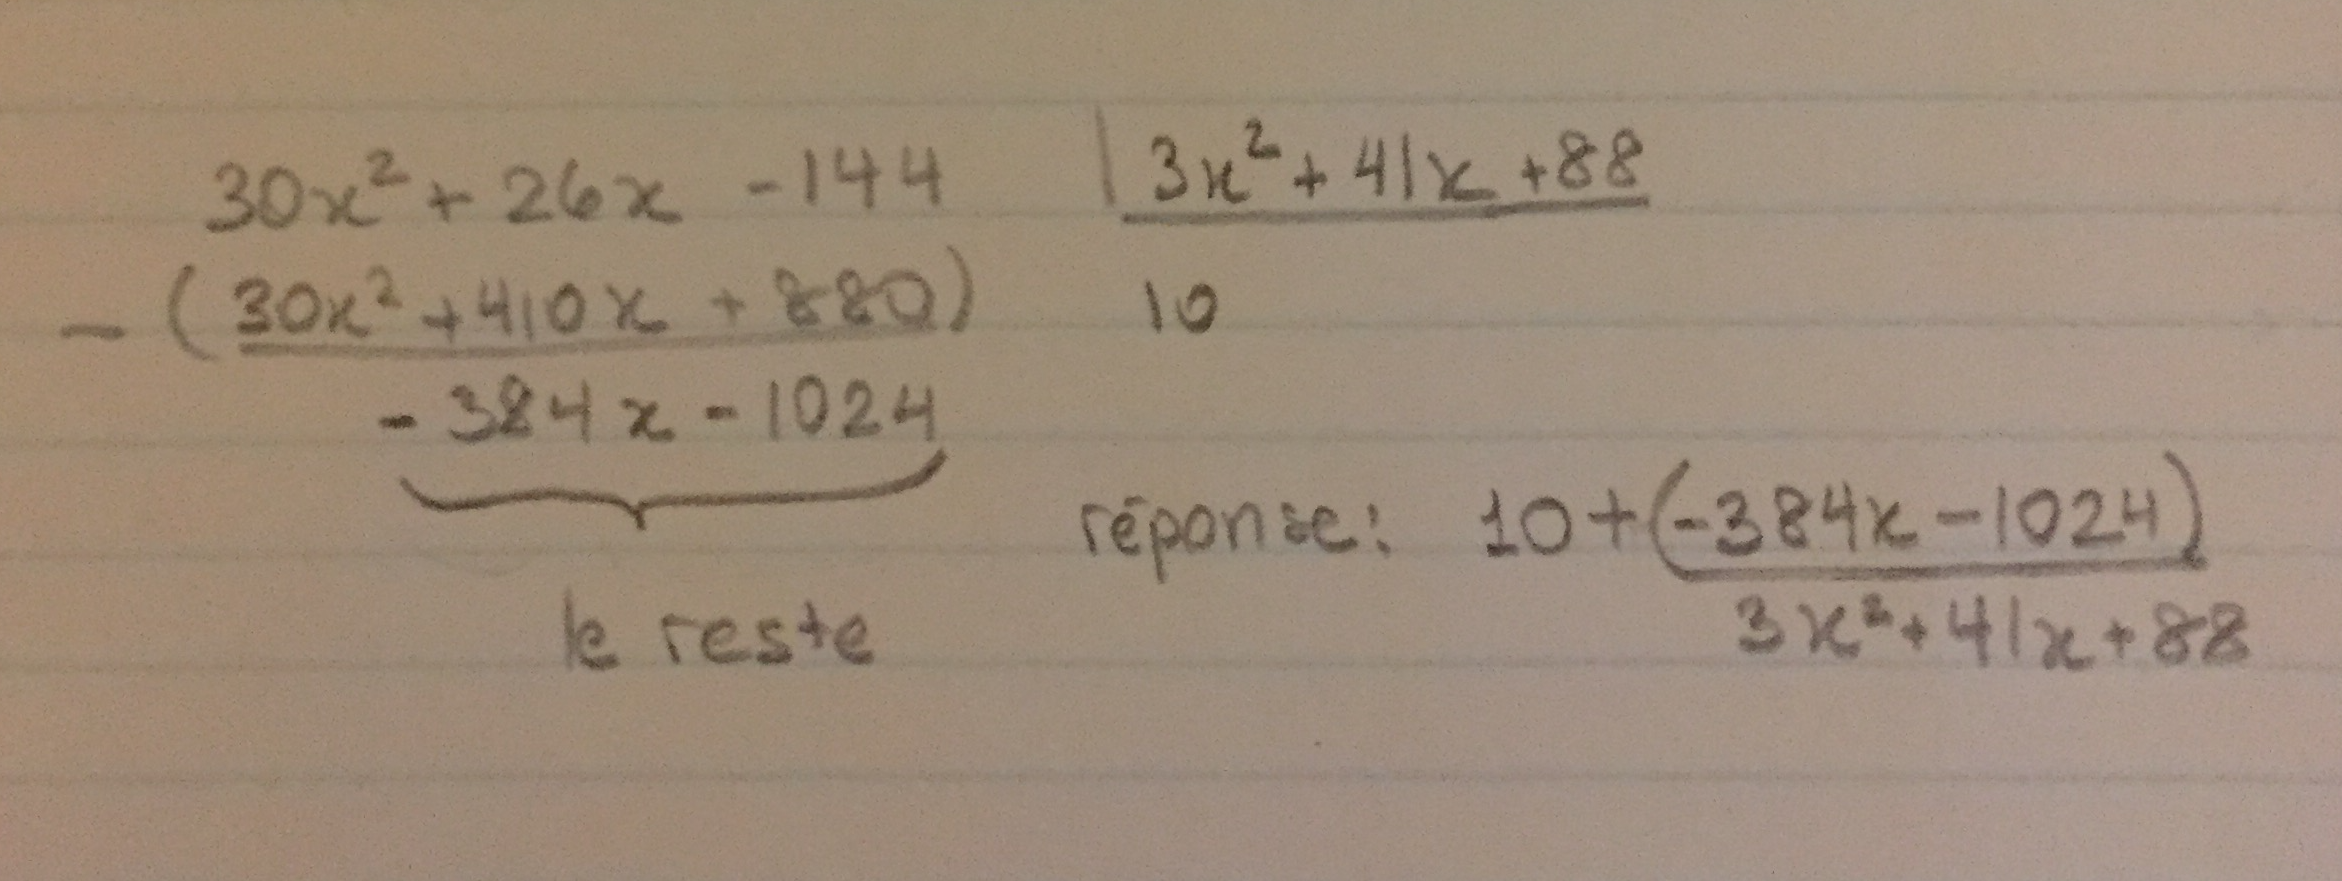 30x² + 26x - 144 | 3x² + 41x + 88
- (30x² + 410x + 880) 10
- 384x - 1024
le reste
réponse: 10 + (-384x - 1024)
3x² + 41x + 88